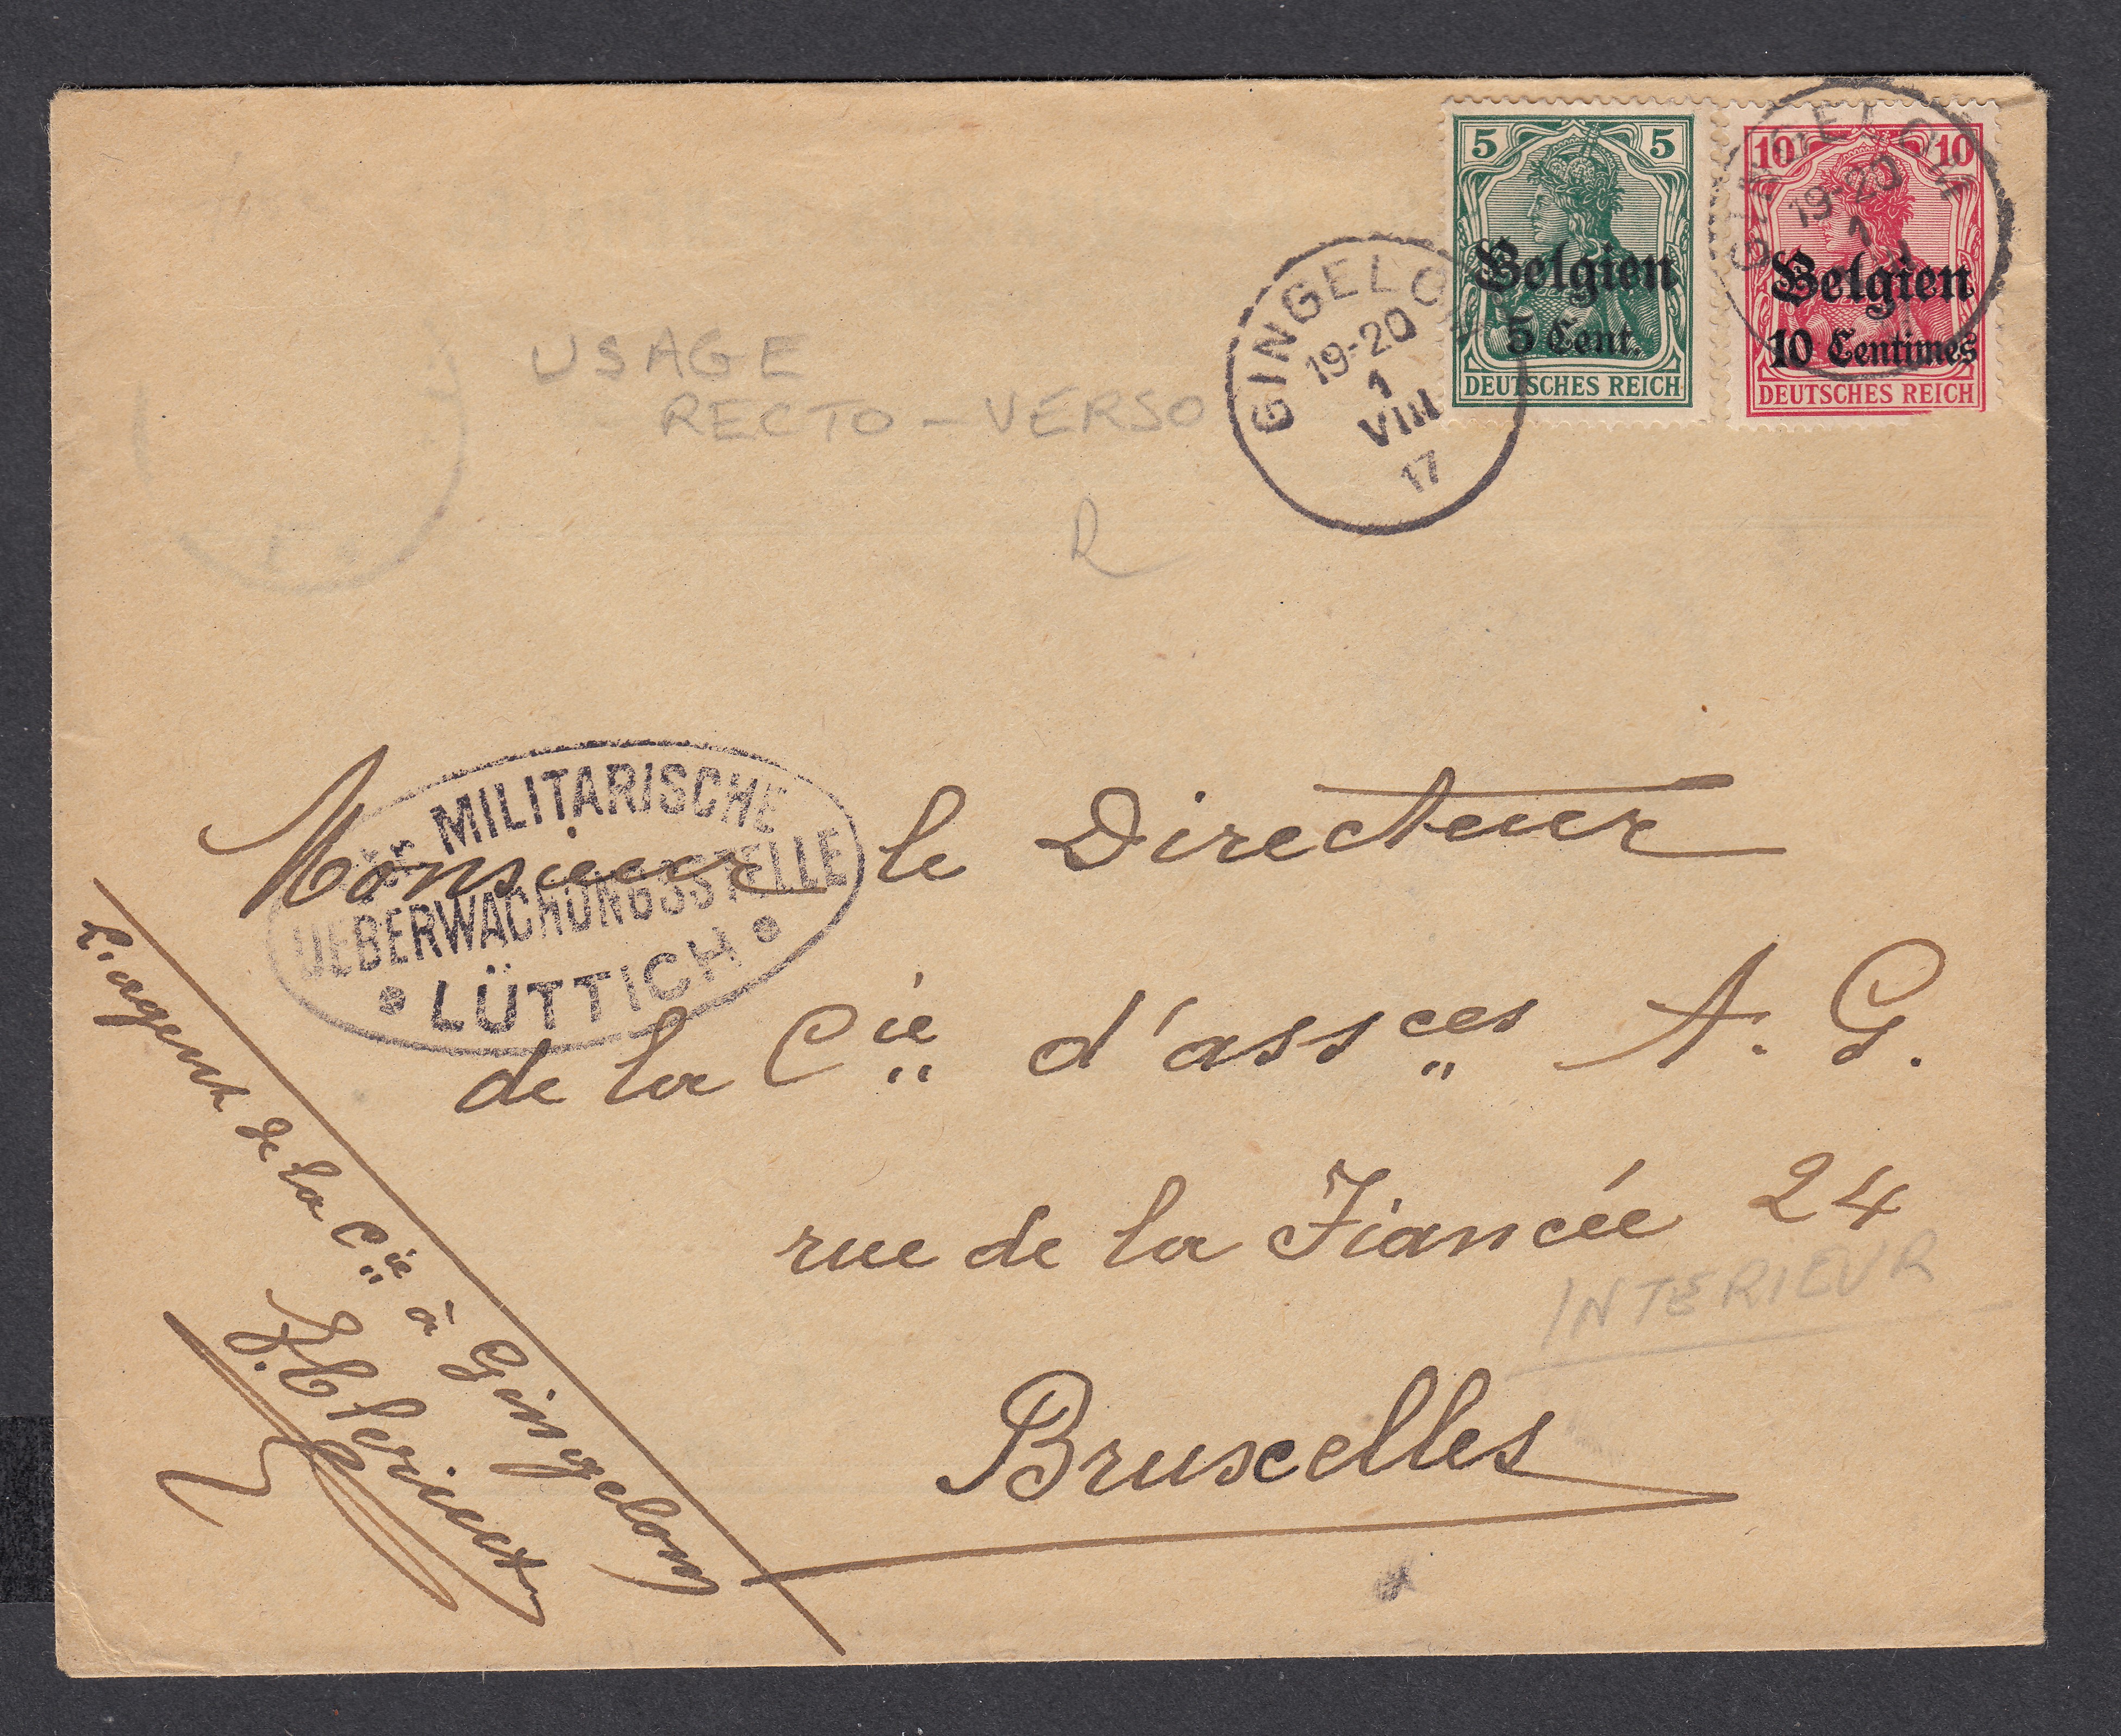 5 5
Belgien
5 Cent.
DEUTSCHES REICH
10 10
Belgien
10 Centimes
DEUTSCHES REICH
GINGELOM
19-20
1
GINGELOM
19-20
1
VIII
17
USAGE
RECTO - VERSO
R
MILITARISCHE
UEBERWACHUNGSSTELLE
LÜTTICH
Monsieur le Directeur
de la Cie d'assces A. G.
rue de la Fiancée 24
INTERIEUR
Bruxelles
L'agent de la Cie à Gingelom